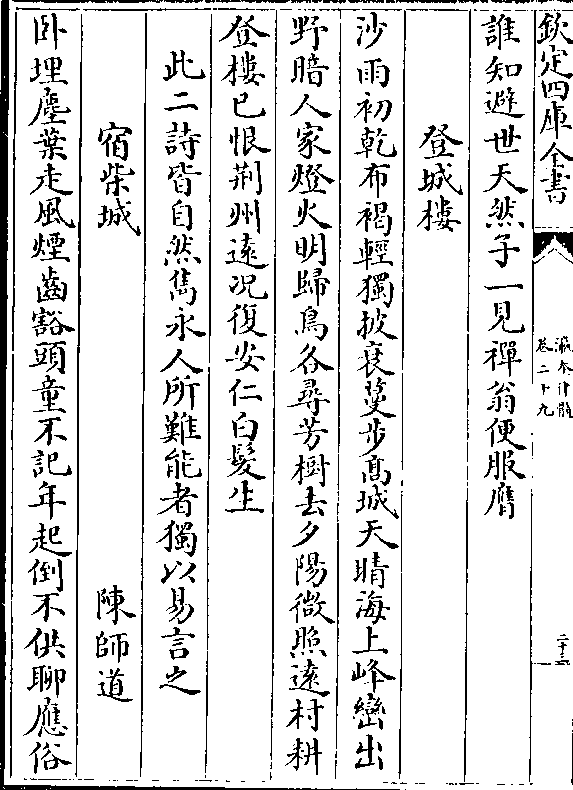 欽定四庫全書
瀛奎律髓
卷二十九
二十三
誰知避世天然子一見禪翁便服膺
登城樓
沙雨初乾布褐輕獨披衰蔓步高城天晴海上峰巒出
野暗人家燈火明歸鳥各尋芳樹去夕陽微照遠村耕
登樓已恨荆州遠况復安仁白髮生
此二詩皆自然雋永人所難能者獨以易言之
宿柴城 陳師道
卧埋塵葉走風煙齒豁頭童不記年起倒不供聊應俗